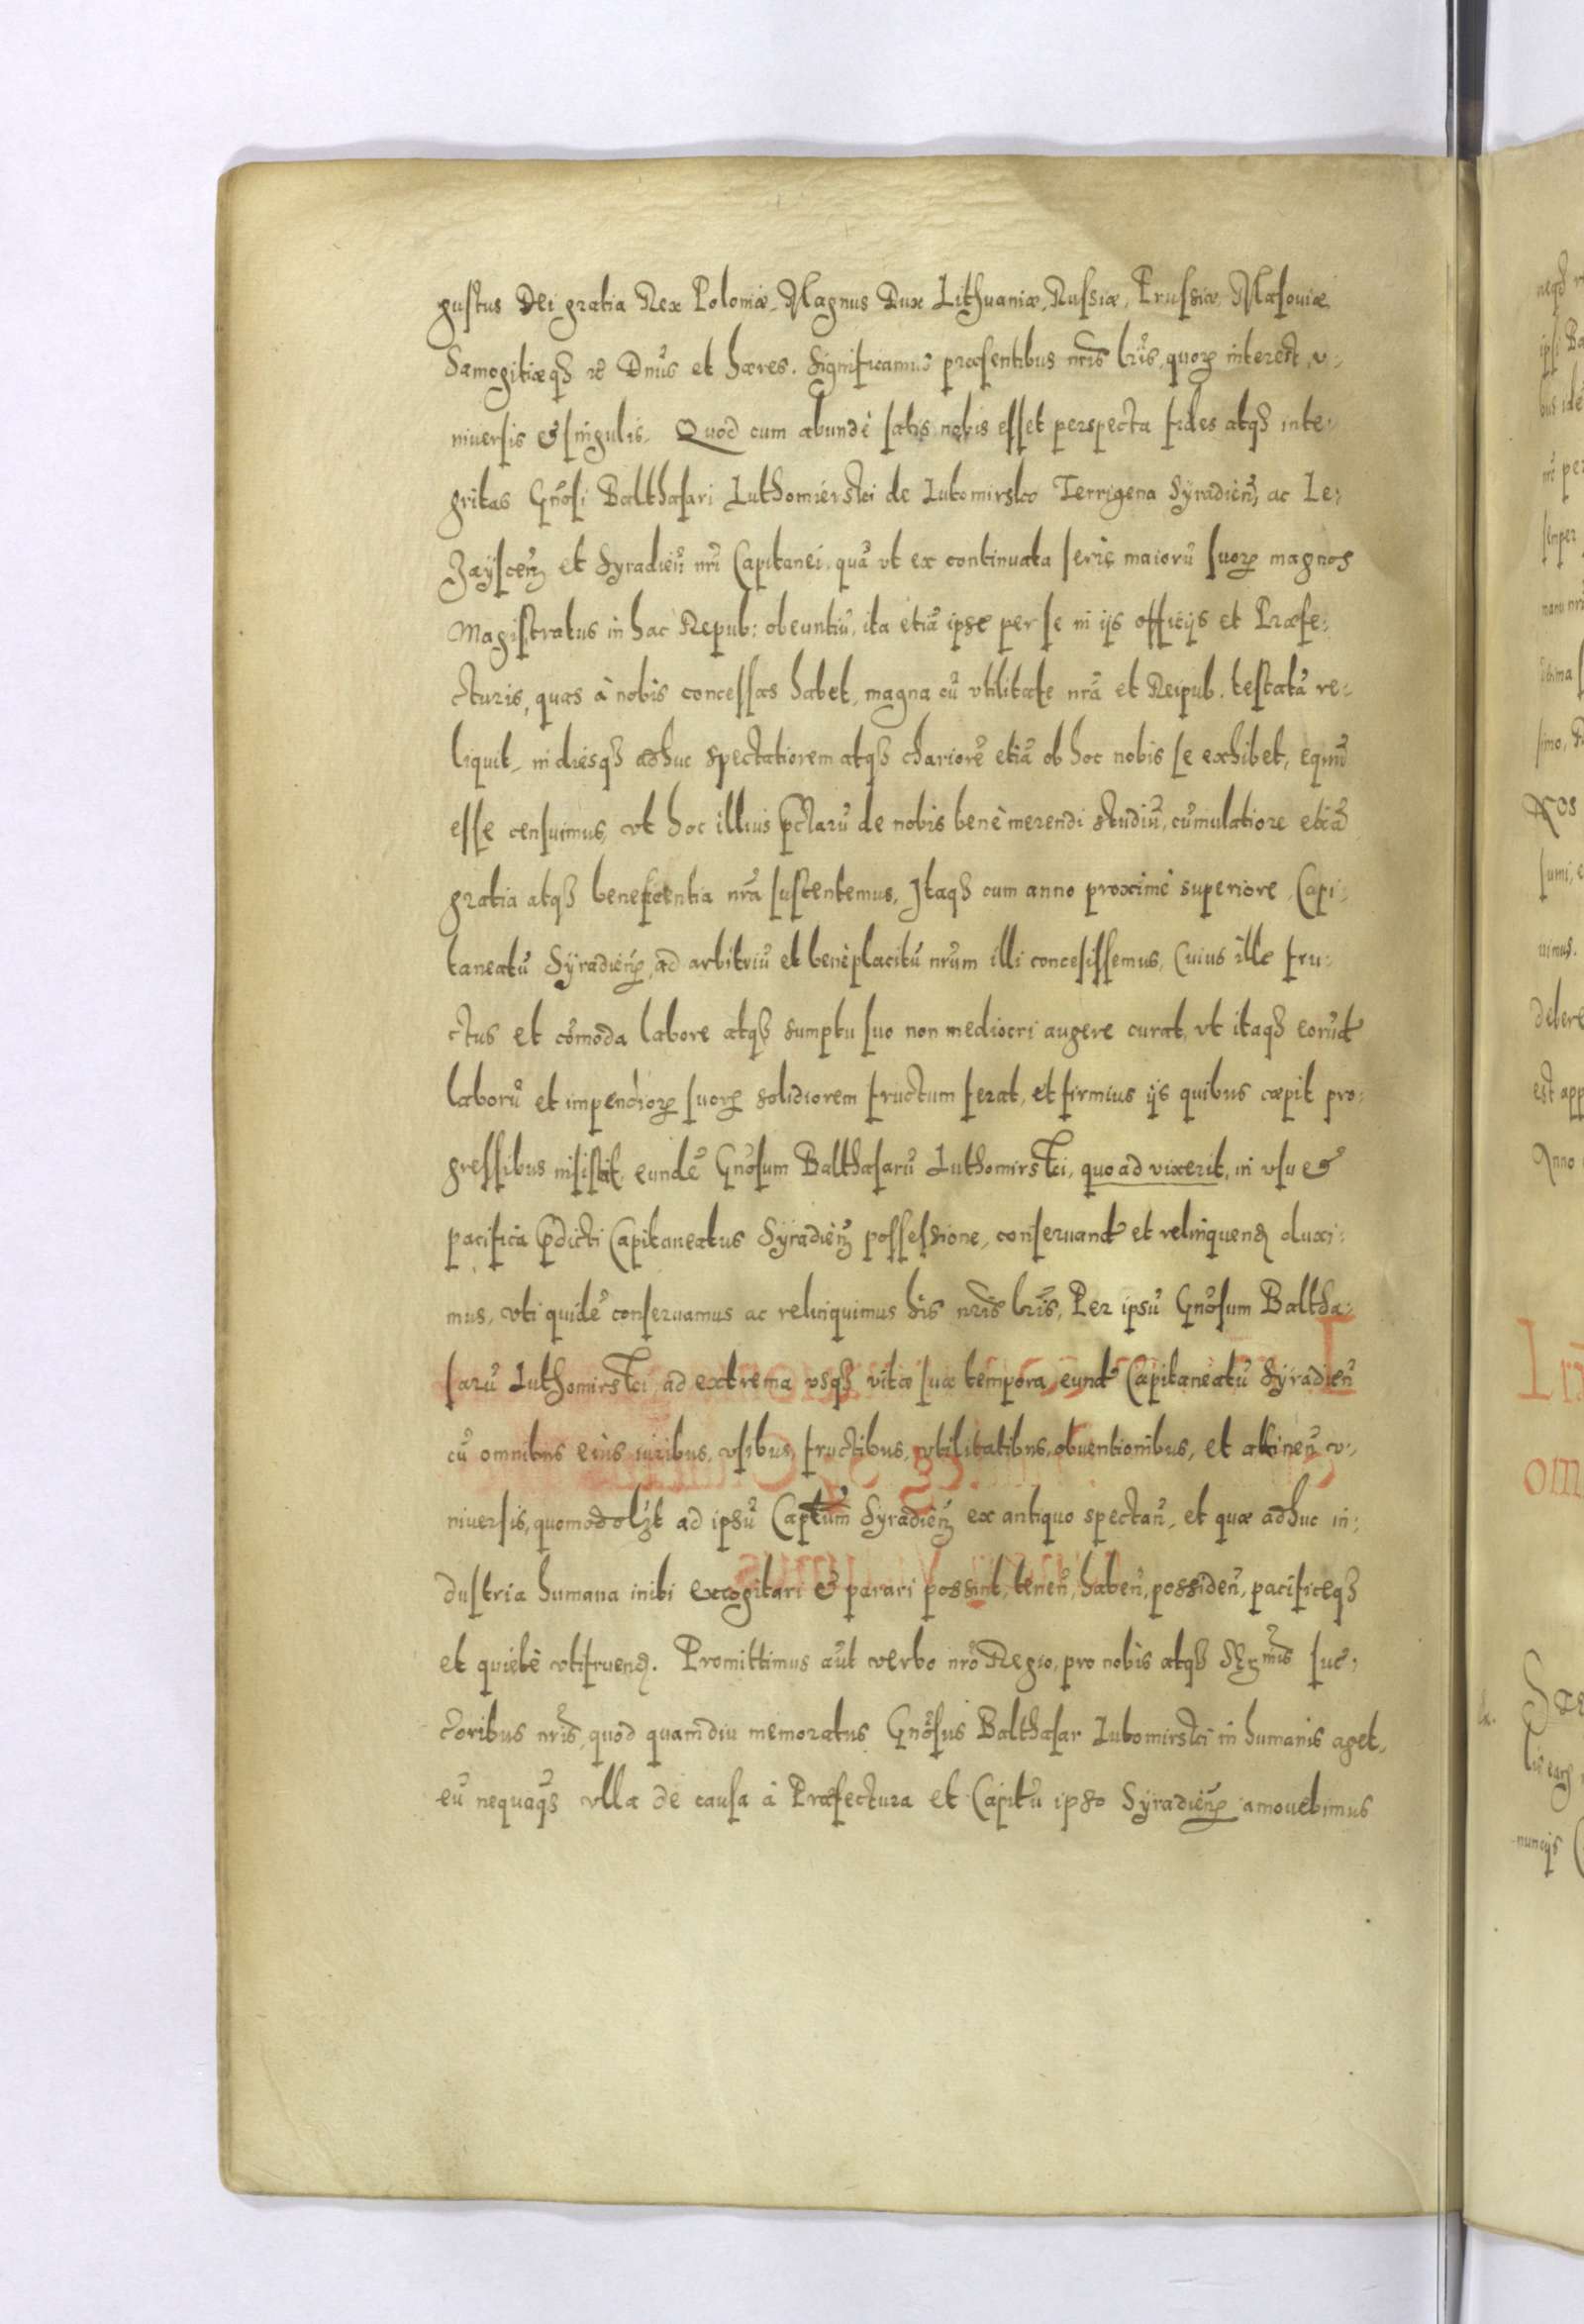 gustus Dei gratia Rex Poloniæ, Magnus Dux Lithuaniæ, Russiæ, Prussiæ, Masouiæ
Samogitiæqȝ ꝛc̃ Dnũs et hæres. Significamus præsentibus nrĩs lrĩs, quorꝫ interest, v-
niuersis & singulis. Quod cum abundè satis nobis esset perspecta fides atqȝ inte-
gritas Gnõsi Balthasari Luthomierski de Lutomirsko Terrigena Syradieñ, ac Le-
ʒaÿsceñ et Syradieñ nrĩ Capitanei, quã vt ex continuata serie maiorũ suorꝫ magnos
Magistratus in hac Repub: obeuntiũ, ita etiã ipse per se in ijs officijs et Præfe-
cturis, quas à nobis concessas habet, magna cũ vtilitate nrã et Reipub. testatã re-
liquit, in diesqȝ adhuc spectatiorem atqȝ chariorẽ etiã ob hoc nobis se exhibet, equũ
esse censuimus, vt hoc illius pctarũ de nobis benè merendi studiũ, cumulatiore etiã
gratia atqȝ beneficentia nrã sustentemus. Itaqȝ cum anno proximè superiore Capi-
taneatũ Sÿradieñ, ad arbitriũ et benèplacitũ nrũm illi concesissemus, Cuius ille fru-
ctus et cõmoda labore atqȝ sumptu suo non mediocri augere curat, vt itaqȝ eorũd
laborũ et impendiorꝫ suorꝫ solidiorem fructum ferat, et firmius ijs quibus cœpit pro-
gressibus insistat, eundẽ Gnõsum Balthasarũ Luthomirski, quo ad vixerit, in vsu &
pacifica pdicti Capitaneatus Syradieñ possessione, conseruand et relinquend duxi-
mus, vti quidẽ conseruamus ac relinquimus his nrĩs lrĩs, Per ipsũ Gnõsum Baltha-
sarũ Luthomirski, ad extrema vsqȝ vitæ suæ tempora, eund Capitaneatũ Sÿradieñ
cũ omnibus eius iuribus, vsibus, fructibus, vtilitatibus, obuentionibus, et attineñ v-
niuersis, quomodolȝt ad ipsũ Captum Syradieñ ex antiquo spectañ, et quæ adhuc in-
dustria humana inibi excogitari & parari possint, teneñ, habeñ, possideñ, pacificeqȝ
et quietè vtifruend. Promittimus aũt verbo nrõ Regio, pro nobis atqȝ Srmis suc-
cčoribus nrĩs, quod quamdiu memoratus Gnõsus Balthasar Lutomirski in humanis aget,
eũ nequaqȝ vlla de causa à Præfectura et Capitũ ipso Syradieñ amouebimus